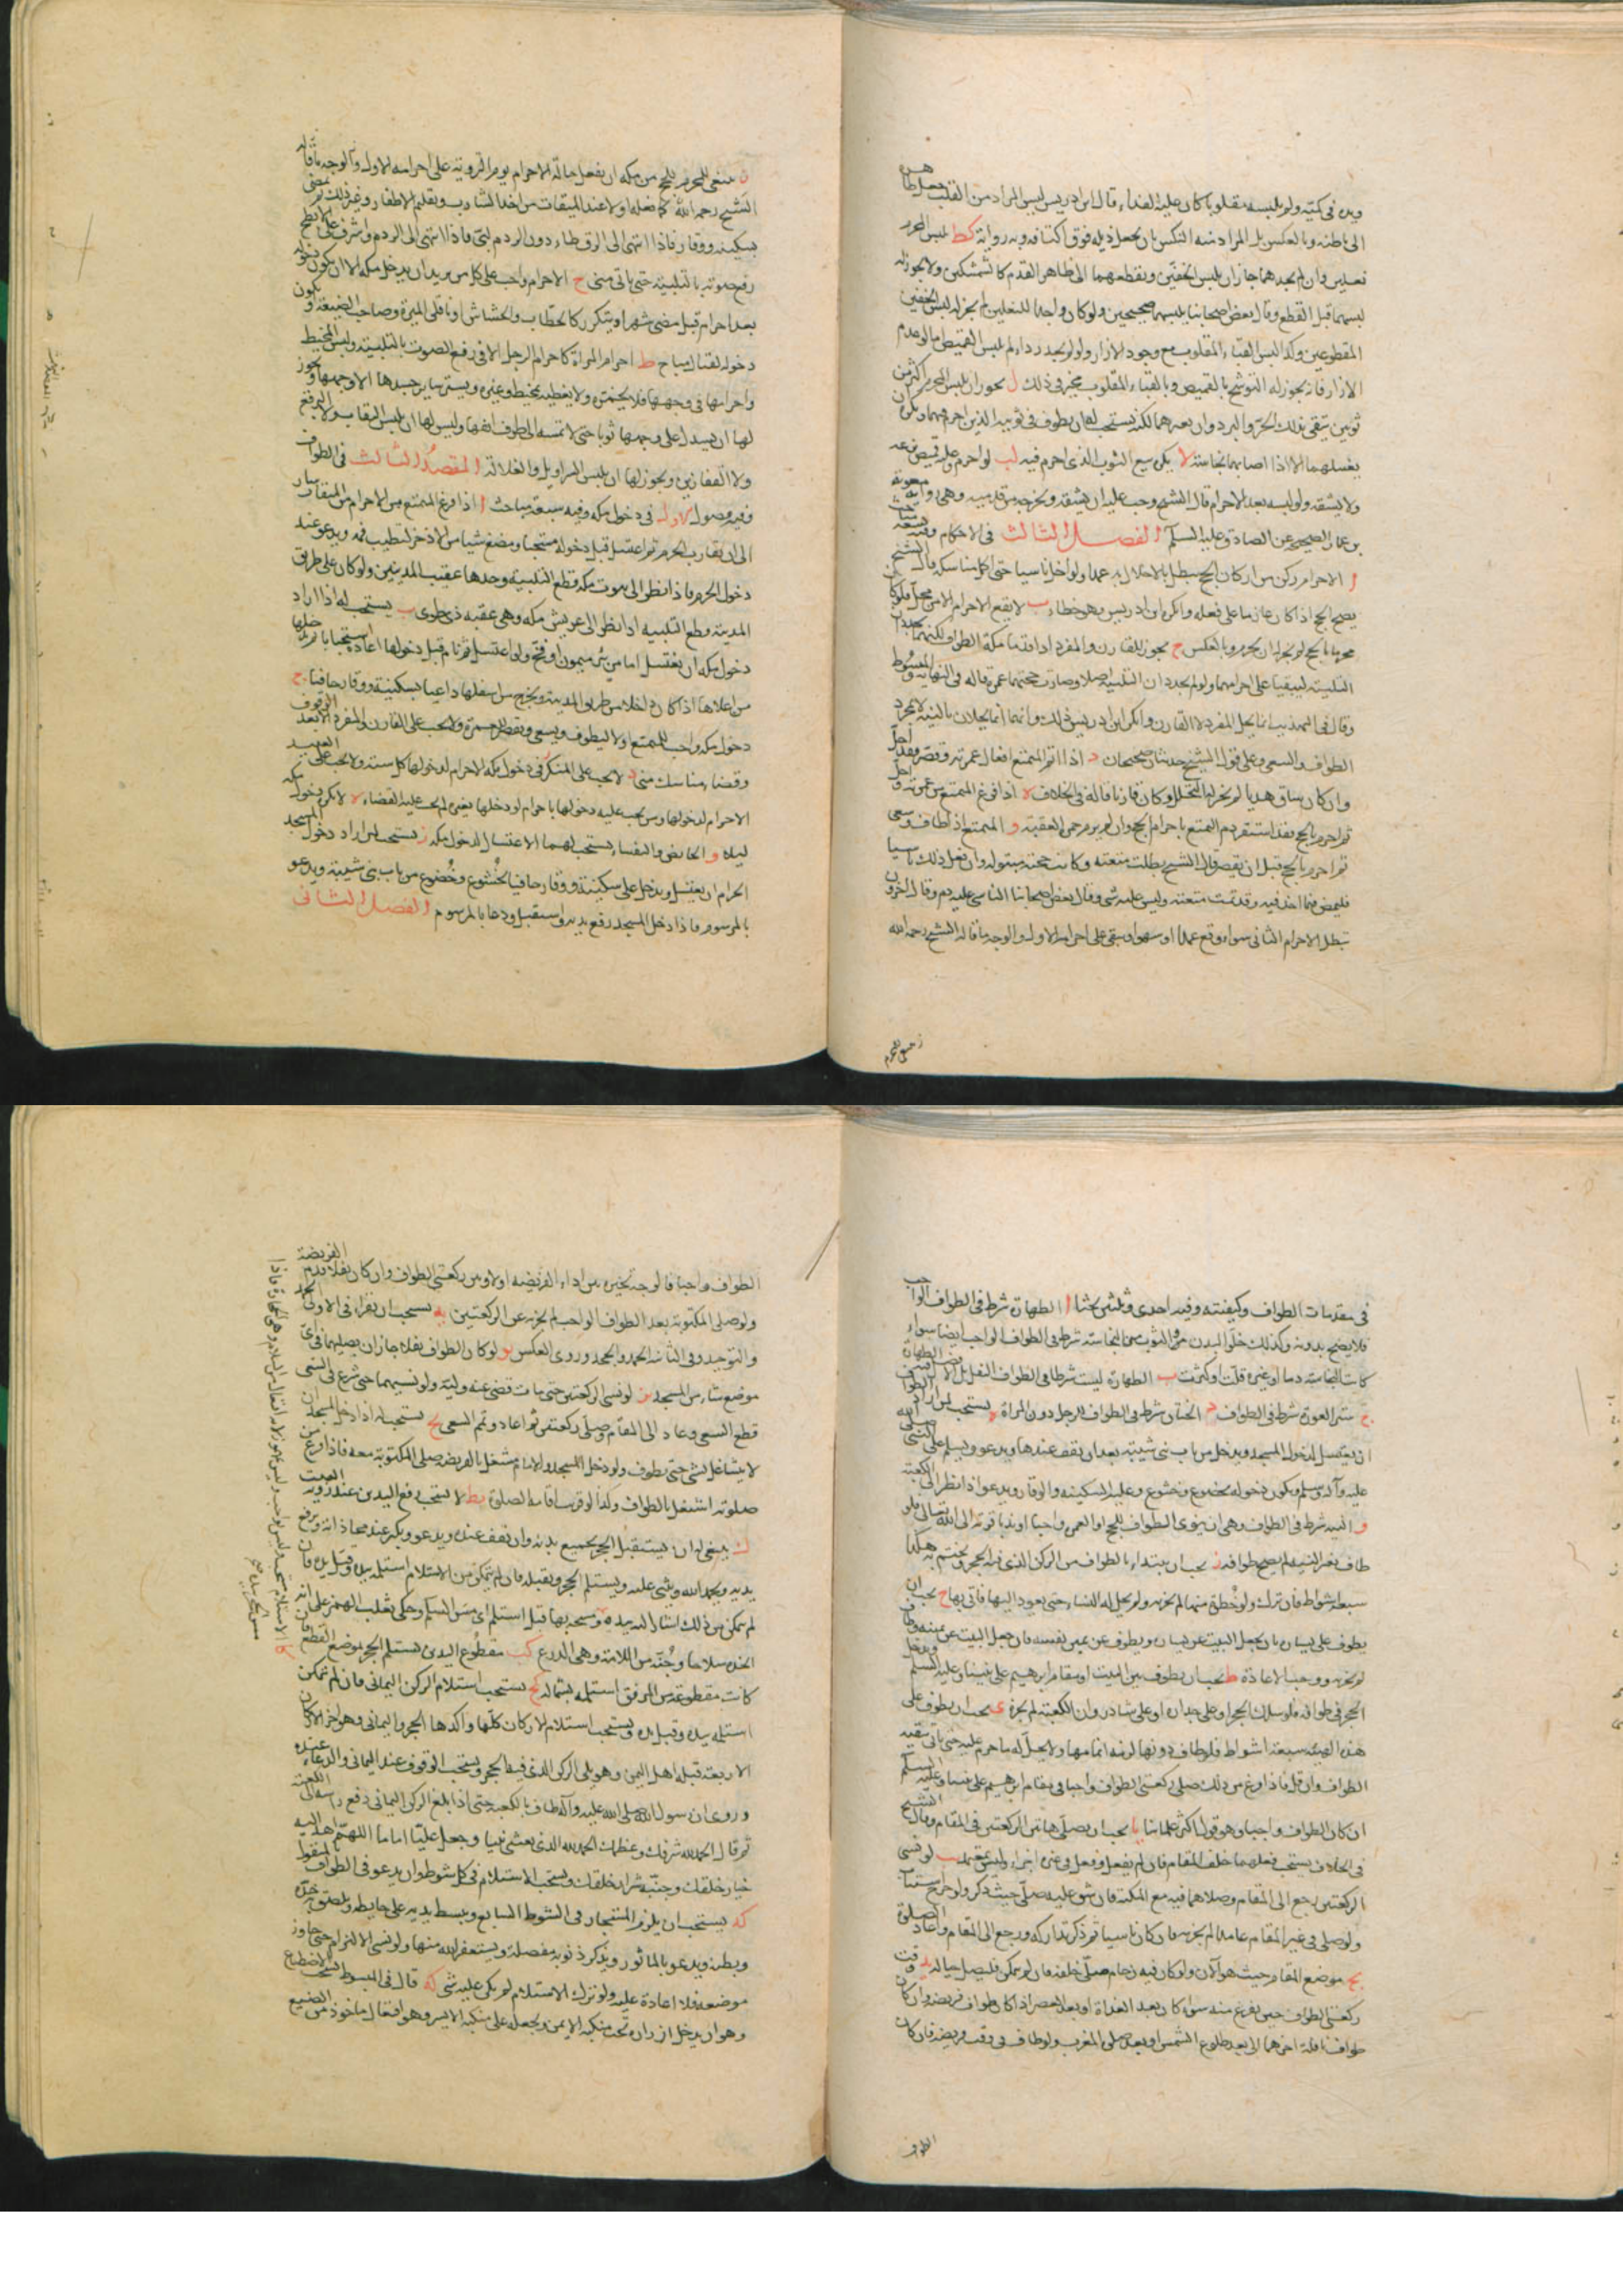 ويديه في كميه ولو لبسه مقلوبا كان عليه الفداء قال ابن ادريس ليس المراد من القلب جعل ظاهره
الى باطنه وبالعكس بل المراد منه النكس بان يجعل ذيله فوق اكتافه وبه رواية كط يلبس المحرم
نعلين وان لم يجدهما جاز ان يلبس الخفين ويقطعهما الى ظاهر القدم كالشمشكين ولا يجوز له
لبسهما قبل القطع وقال بعض اصحابنا يلبسهما صحيحين ولو كان واجدا للنعلين لم يجز له لبس الخفين
المقطوعين وكذا لبس القباء المقلوب مع وجود الازار ولو لم يجد رداء لم يلبس القميص اما لو عدم
الازار فانه يجوز له التوشح بالقميص وبالقباء المقلوب مخير في ذلك ل يجوز ان يلبس المحرم اكثر من
ثوبين يتقى بذلك الحر والبرد وان يغيرهما لكنه يستحب له ان يطوف في ثوبيه الذين احرم فيهما ويكره ان
يغسلهما الا اذا اصابهما نجاسة لا يكره بيع الثوب الذى احرم فيه لب لو احرم وعليه قميص نزعه
ولا يشقه ولو لبسه بعد الاحرام قال الشيخ وجب عليه ان يشقه ويخرجه من قدميه وهي رواية معوية
بن عمار الصحيح عن الصادق عليه السلام الفصل الثالث في الاحكام وفيه تسعة مباحث
ا الاحرام ركن من اركان الحج يبطل بالاخلال به عمدا ولو اخل ناسيا حتى اكمل مناسكه قال الشيخ
يصح الحج اذا كان عازما على فعله وانكر ابن ادريس وهو خطاء ب لا يقع الاحرام الا من محل فلو كان
محرما بالحج لم يجز له ان يحرم وبالعكس ج يجوز للقارن والمفرد اذا قدما مكة الطواف لكنهما يجددان
التلبية ليبقيا على احرامهما ولو لم يجددا التلبية احلا وصارت حجتهما عمرة قاله في النهاية والمبسوط
وقال في التهذيب انما يحل المفرد لا القارن وانكر ابن ادريس ذلك وانهما انما يحلان بالنية لا بمجرد
الطواف والسعى وعلى قول الشيخ حديثان صحيحان د اذا اتم المتمتع افعال عمرته وقصر فقد احل
وان كان ساق هديا لم يجز له التحلل وكان قارنا قاله في الخلاف ه اذا فرغ المتمتع من عمرته واحل
ثم احرم بالحج فقد استقر دم التمتع باحرام الحج وان لم يرم جمرة العقبة و المتمتع اذا طاف وسعى
ثم احرم بالحج قبل ان يقصر قال الشيخ بطلت متعته وكانت حجته مبتولة وان فعل ذلك ناسيا
فليمض فيما اخذ فيه وقد تمت متعته وليس عليه شي وقال بعض اصحابنا الناسي عليه دم وقال اخرون
تبطل الاحرام الثاني سواء وقع عمدا او سهوا ويبقى على احرامه الاول والوجه ما قاله الشيخ رحمه الله
ز ينبغي للمحرم
ز ينبغي للمحرم للحج من مكه ان يفعل حالة الاحرام يوم التروية على احرامه الاول والوجه ما قاله
الشيخ رحمه الله كما فعله اولا عند الميقات من اخذ الشارب وتقليم الاظفار وغير ذلك ثم يمضى
بسكينة ووقار فاذا انتهى الى الرقطاء دون الردم لبى فاذا انتهى الى الردم واشرف على الابطح
رفع صوته بالتلبية حتى ياتى منى ح الاحرام واجب على كل من يريد ان يدخل مكه الا ان يكون دخوله
بعد احرام قبل مضى شهر او يتكرر كالحطاب والحشاش او ناقلى الميرة وصاحب الضيعة او يكون
دخوله لقتال مباح ط احرام المراة كاحرام الرجل الا في رفع الصوت بالتلبية ولبس المخيط
واحرامها في وجهها فلا يختمر ولا يغطيه بمخيط وغيره ويستر سائر جسدها الا وجهها ويجوز
لها ان يسدل على وجهها ثوبا حتى لا تمسه الى طرف انفها وليس لها ان يلبس النقاب ولا البرقع
ولا القفازين ويجوز لها ان يلبس السراويل والغلالة المقصد الثالث في الطواف
وفيه فصول الاول في دخول مكه وفيه سبعة مباحث ا اذا فرغ المتمتع من الاحرام من الميقات سار
الى ان يقارب الحرم ثم اغتسل قبل دخوله مستحبا ومضغ شيا من الاذخر لتطيب فمه ويدعو عند
دخول الحرم فاذا نظر الى بيوت مكه قطع التلبية وحدها عقبة المدنيين ولو كان على طريق
المدينة قطع التلبية اذا نظر الى عريش مكه وهي عقبة ذى طوى ب يستحب له اذا اراد
دخول مكه ان يغتسل اما من بئر ميمون او فخ ولو اغتسل ثم نام قبل دخولها اعاد مستحبا ويدخلها
من اعلاها اذا كان داخلا من طريق المدينة ويخرج من اسفلها داعيا بسكينة ووقار حافيا ج
دخول مكه واجب للمتمتع اولا ليطوف ويسعى ويقصر ثم يحرم ولا يجب على القارن والمفرد الا بعد الوقوف
وقضاء مناسك منى د لا يجب على المتكرر في دخول مكه الاحرام لدخولها كل سنة ولا يجب على العبيد
الاحرام لدخولها ومن يجب عليه دخولها باحرام لو دخلها بغيره لم يجب عليه القضاء ه لا يكره دخول مكه
ليلا و الحائض والنفساء يستحب لهما الاغتسال لدخول مكه ز يستحب لمن اراد دخول المسجد
الحرام ان يغتسل ويدخل على سكينة ووقار حافيا بخشوع وخضوع من باب بنى شيبة ويدعو
بالمرسوم فاذا دخل المسجد رفع يديه واستقبل ودعا بالمرسوم الفصل الثانى
في مقدمات الطواف وكيفيته وفيه احدى وثلثون بحثا ا الطهارة شرط في الطواف الواجب
فلا يصح بدونه وكذلك خلو البدن والثوب من النجاسة شرط في الطواف الواجب ايضا سواء
كانت النجاسة دما او غيره قلت او كثرت ب الطهارة ليست شرطا في الطواف النفل بل الافضل فيه الطهارة
ج ستر العورة شرط في الطواف د الختان شرط في الطواف للرجل دون المراة ه يستحب لمن اراد الطواف
ان يغتسل لدخول المسجد ويدخل من باب بنى شيبة بعد ان يقف عندها ويدعو ويسلم على النبي صلى الله
عليه وآله وسلم ويكون دخوله بخضوع وخشوع وعليه السكينة والوقار ويدعو اذا نظر الى الكعبة
و النية شرط في الطواف وهي ان ينوى الطواف للحج او العمرة واجبا او ندبا قربة الى الله تعالى فلو
طاف بغير النية لم يصح طوافه ز يجب ان يبتداء بالطواف من الركن الذى فيه الحجر ويختم به هكذا
سبعة اشواط فان ترك ولو خطوة منها لم يجزه ولم يحل له النساء حتى يعود اليها فياتي بها ح يجب ان
يطوف على يساره بان يجعل البيت عن يساره ويطوف عن يمين نفسه فان جعل البيت عن يمينه وطاف
لم يجزه ووجب الاعادة ط يجب ان يطوف بين البيت ومقام ابرهيم على نبينا وعليه السلم ويدخل
الحجر في طوافه فلو سلك الحجر او على جداره او على شاذروان الكعبة لم يجزه ى يجب ان يطوف على
هذه الهيئة سبعة اشواط فلو طاف دونها لزمه اتمامها ولا يحل له ما حرم عليه حتى ياتى ببقية
الطواف وان قل فاذا فرغ من ذلك صلى ركعتى الطواف واجبا في مقام ابرهيم على نبينا وعليه السلم
ان كان الطواف واجبا وهو قول اكثر علمائنا يا يجب ان يصلى هاتين الركعتين في المقام وقال الشيخ
في الخلاف يستحب فعلهما خلف المقام فان لم يفعل وفعل في غيره اجزاه وليس بمعتمد يب لو نسى
الركعتين رجع الى المقام وصلاهما فيه مع المكنة فان شق عليه صلى حيث ذكر ولو خرج استناب
ولو صلى في غير المقام عامدا لم يجزه فان كان ناسيا ثم ذكر تداركه ورجع الى المقام واعاد الصلوة
يج موضع المقام حيث هو الآن ولو كان فيه زحام صلى خلفه فان لم يمكن فليصل حياله يد وقت
ركعتى الطواف حين يفرغ منه سواء كان بعد الغداة او بعد العصر اذا كان طواف فريضة وان كان
طواف نافلة اخرهما الى بعد طلوع الشمس او بعد صلى المغرب ولو طاف في وقت فريضة فان كان
الطواف
الطواف واجبا فالوجه تخييره بين اداء الفريضة اولا وبين ركعتى الطواف وان كان نفلا قدم الفريضة
ولو صلى المكتوبة بعد الطواف الواجب لم يجزه عن الركعتين يه يستحب ان يقراء في الاولى الحمد
والتوحيد وفي الثانية الحمد والجحد وروى العكس يو لو كان الطواف نفلا جاز ان يصليهما في اى
موضع شاء من المسجد يز لو نسى الركعتين حتى مات قضى عنه وليه ولو نسيهما حتى شرع في السعى
قطع السعى وعاد الى المقام وصلى ركعتين ثم اعاد وتمم السعى يح يستحب له اذا دخل المسجد ان
لا يتشاغل بشي حتى يطوف ولو دخل المسجد والامام مشغل بالفريضة صلى المكتوبة معه فاذا فرغ من
صلوته اشتغل بالطواف وكذا لو قربت اقامة الصلوة يط لا يستحب رفع اليدين عند روية البيت
ك ينبغي له ان يستقبل الحجر بجميع بدنه وان يقف عنده ويدعو ويكبر عند محاذاته ويرفع
يديه ويحمد الله ويثنى عليه ويستلم الحجر ويقبله فان لم يتمكن من الاستلام استلمه بيده وقبل يده فان
لم يتمكن من ذلك اشار اليه بيده ومسحه بها قبل استلم اى مس السلم وحكى ثعلب الهمز على انه
اتخذه سلاحا وجنة من اللامة وهي الدرع كب مقطوع اليد يستلم الحجر بموضع القطع فان
كانت مقطوعة من المرفق استلمه بشماله كج يستحب استلام الركن اليمانى فان لم يتمكن
استلمه بيده وقبل يده ويستحب استلام الاركان كلها واكدها الحجر واليمانى وهو اخر الاركان
الاربعة قبلة اهل اليمن وهو يلى الركن الذى فيه الحجر ويستحب الوقوف عند اليمانى والدعاء عنده
وروى ان رسول الله صلى الله عليه وآله طاف بالكعبة حتى اذا بلغ الركن اليمانى رفع راسه الى الكعبة
ثم قال الحمد لله شرفك وعظمك الحمد لله الذى بعثنى نبيا وجعل عليا اماما اللهم اهد اليه
خيار خلقك وجنبه شرار خلقك ويستحب الاستلام في كل شوط وان يدعو في الطواف المنقول
كد يستحب ان يلزم المستجار في الشوط السابع ويبسط يديه على حايطه ويلصق به خده
وبطنه ويدعو بالماثور ويذكر ذنوبه مفصلة ويستغفر الله منها ولو نسى الالتزام حتى جاوز
موضعه فلا اعادة عليه ولو ترك الاستلام لم يكن عليه شي كه قال في المبسوط يستحب الاضطباع
وهو ان يدخل ازاره تحت منكبه الايمن ويجعله على منكبه الايسر وهو افتعال ماخوذ من الضبع